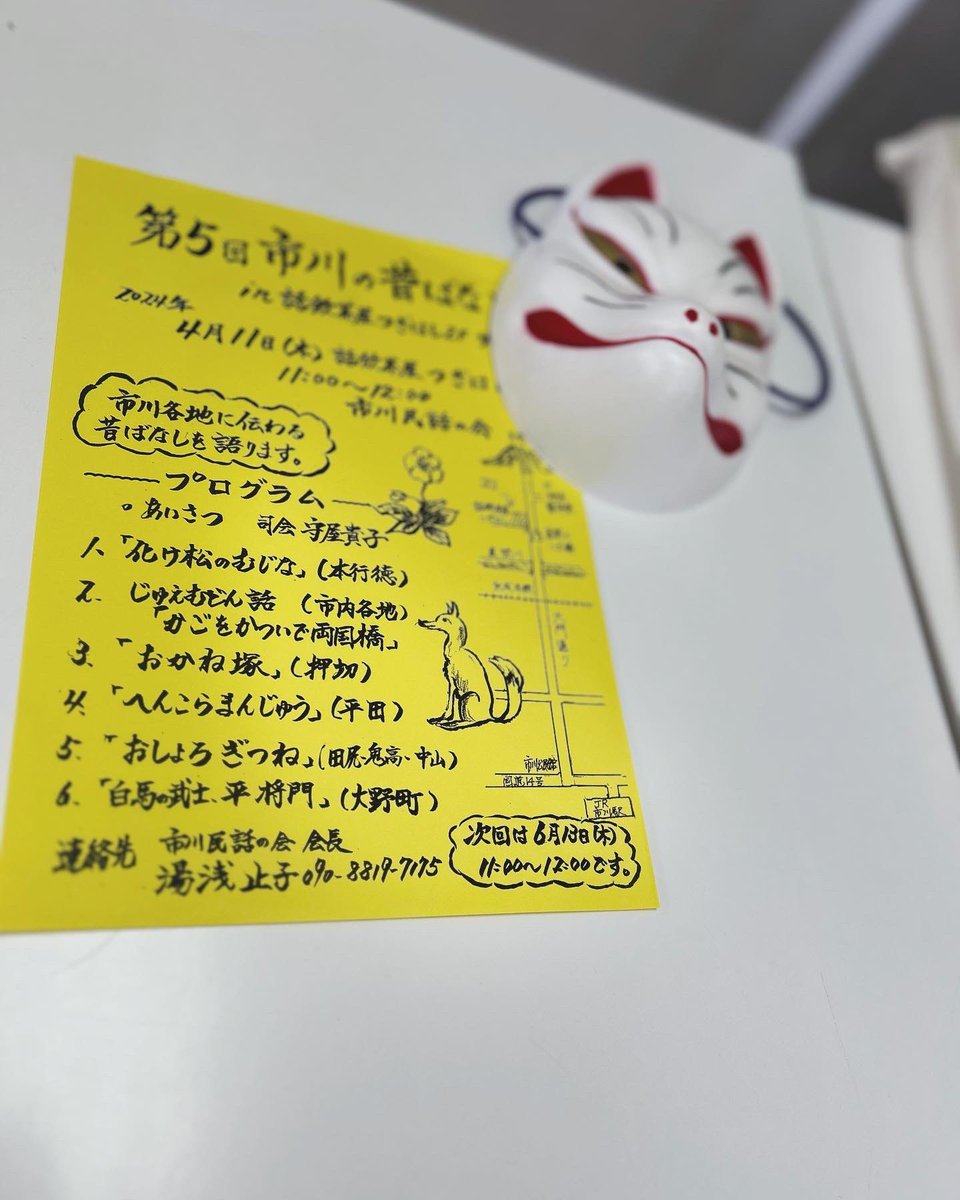 第5回市川の昔ばな
in 話飲茶屋つぎはし
2024年
4月11日(木) 話飲茶屋 つぎは
11:00〜12:00
市川民話の会
市川各地に伝わる
昔ばなしを語ります。
プログラム
。あいさつ 司会 守屋貴子
1、「化け松のむじな」(本行徳)
2、じゅえむどん話 (市内各地)
「かごをかついで両国橋」
3、「おかね塚」(押切)
4、「へんこらまんじゅう」(平田)
5、「おしょろぎつね」(田尻・鬼高・中山)
6、「白馬の武士、平将門」(大野町)
連絡先 市川民話の会 会長
湯浅止子 090-8819-7175
国道14号
JR
市川駅
次回は6月13日(木)
11:00〜12:00です。